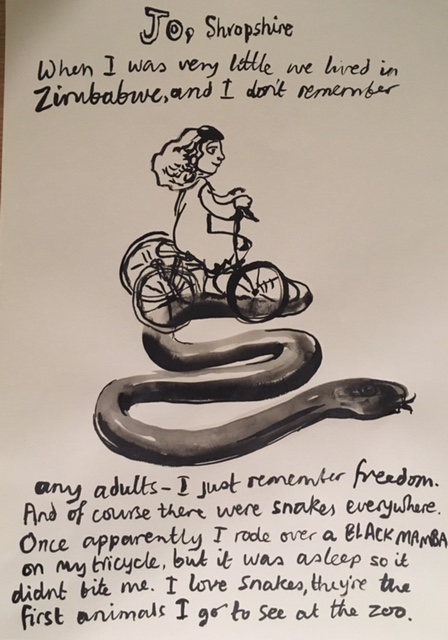 Jo, Shropshire
When I was very little we lived in
Zimbabwe, and I don't remember
any adults - I just remember freedom.
And of course there were snakes everywhere.
Once apparently I rode over a BLACK MAMBA
on my tricycle, but it was asleep so it
didnt bite me. I love snakes, they're the
first animals I go to see at the zoo.